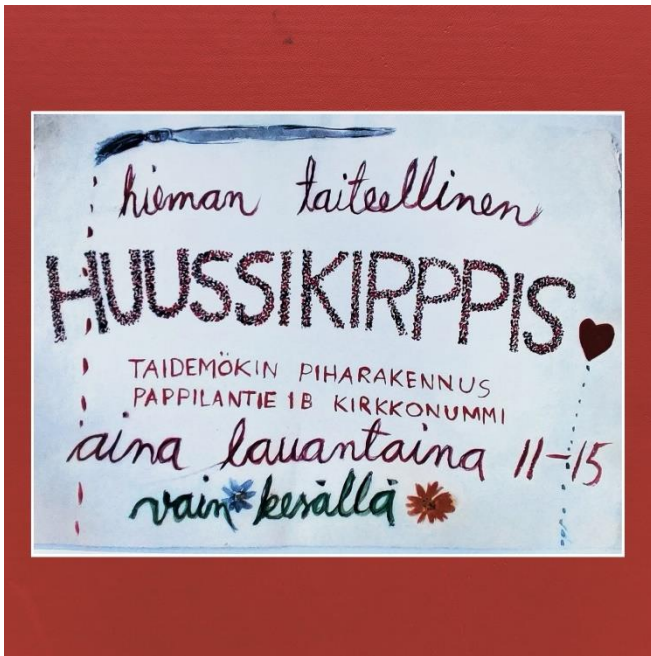 hieman taiteellinen
HUUSSIKIRPPIS
TAIDEMÖKIN PIHARAKENNUS
PAPPILANTIE 1B KIRKKONUMMI
aina lauantaina 11-15
vain kesällä